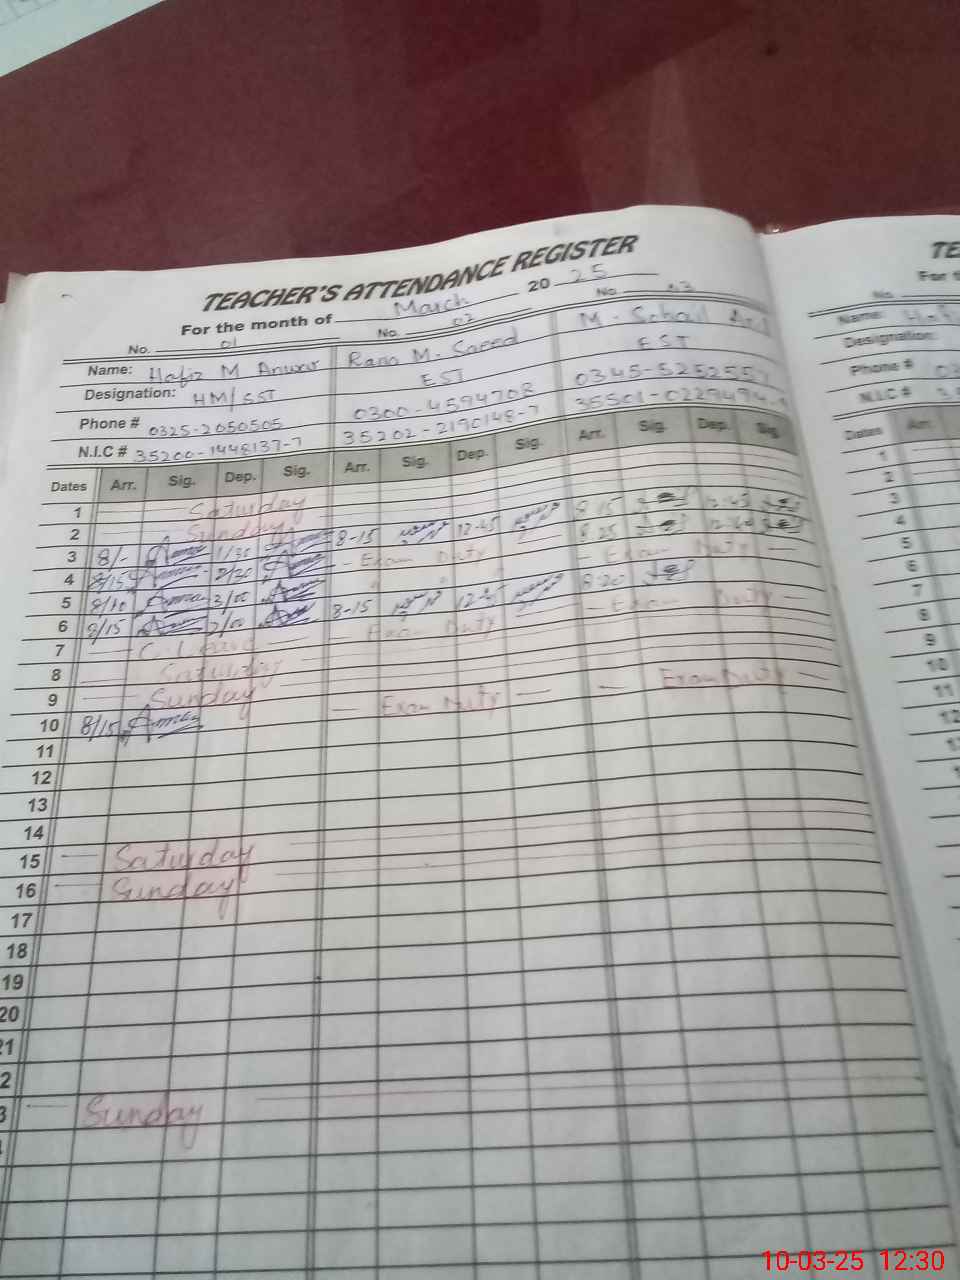 TEACHER'S ATTENDANCE REGISTER
For the month of March 20 25
No. 01 No. 02 No. 03
Name: Hafiz M Anwar Rana M. Saeed M. Sohail
Designation: HM/SST EST EST
Phone # 0325-2050505 0300-4594708 0345-525255
N.I.C # 35200-1448137-7 35202-2190148-7 35501-0229494
Dates Arr. Sig. Dep. Sig. Arr. Sig. Dep. Sig. Arr. Sig. Dep. Sig.
1 Saturday
2 Sunday
3 8/- 1/30 8-15 12-45 8 15 12-45
4 8/15 2/30 - Exam Duty 8 25
5 8/10 3/00 " " - Exam Duty -
6 8/15 2/00 8-15 12-45 8 20
7 C. Leave - Exam Duty - Exam Duty -
8 Saturday
9 Sunday
10 8/15 - Exam Duty - - Exam Duty -
11
12
13
14
15 Saturday
16 Sunday
17
18
19
20
21
2
3 Sunday
TE
For t
No.
Name:
Designation:
Phone # 03
N.I.C #
Dates Arr.
1
2
3
4
5
6
7
8
9
10
11
12
10-03-25 12:30